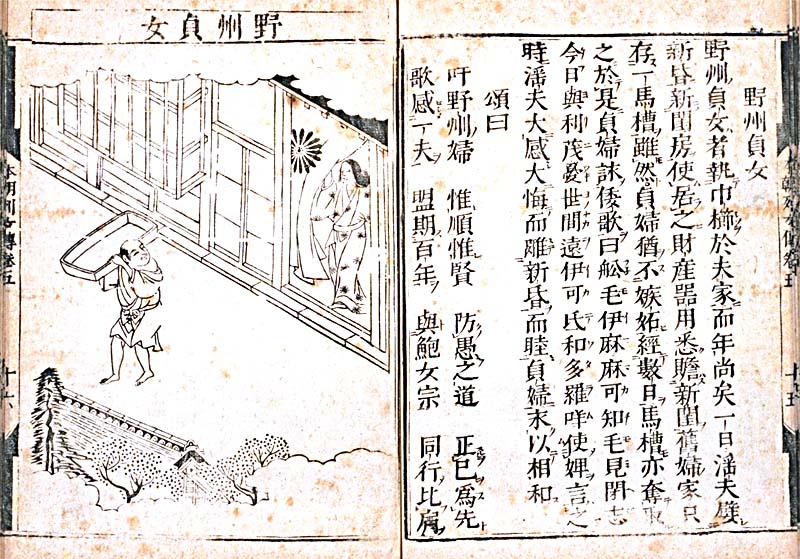 野州貞女
野州貞女者執巾櫛於夫家而年尚矣一日滛夫嬖
新昏新閨房使居之財産器用悉贍新閨舊婦家只
存一馬槽雖然貞婦猶不嫉妬經數日馬槽亦奪取
之於是貞婦詠倭歌曰舩毛伊麻麻可知毛見閉志
今日與利茂憂世間遠伊可氐和多羅咩使娌言之
時滛夫大感大悔而離新昏而睦貞婦末以相和
頌曰
吁野州婦 惟順惟賢 防愚之道 正己爲先
歌感一夫 盟期百年 與鮑女宗 同行比肩
十五
野州貞女
本朝列女傳卷五
十六